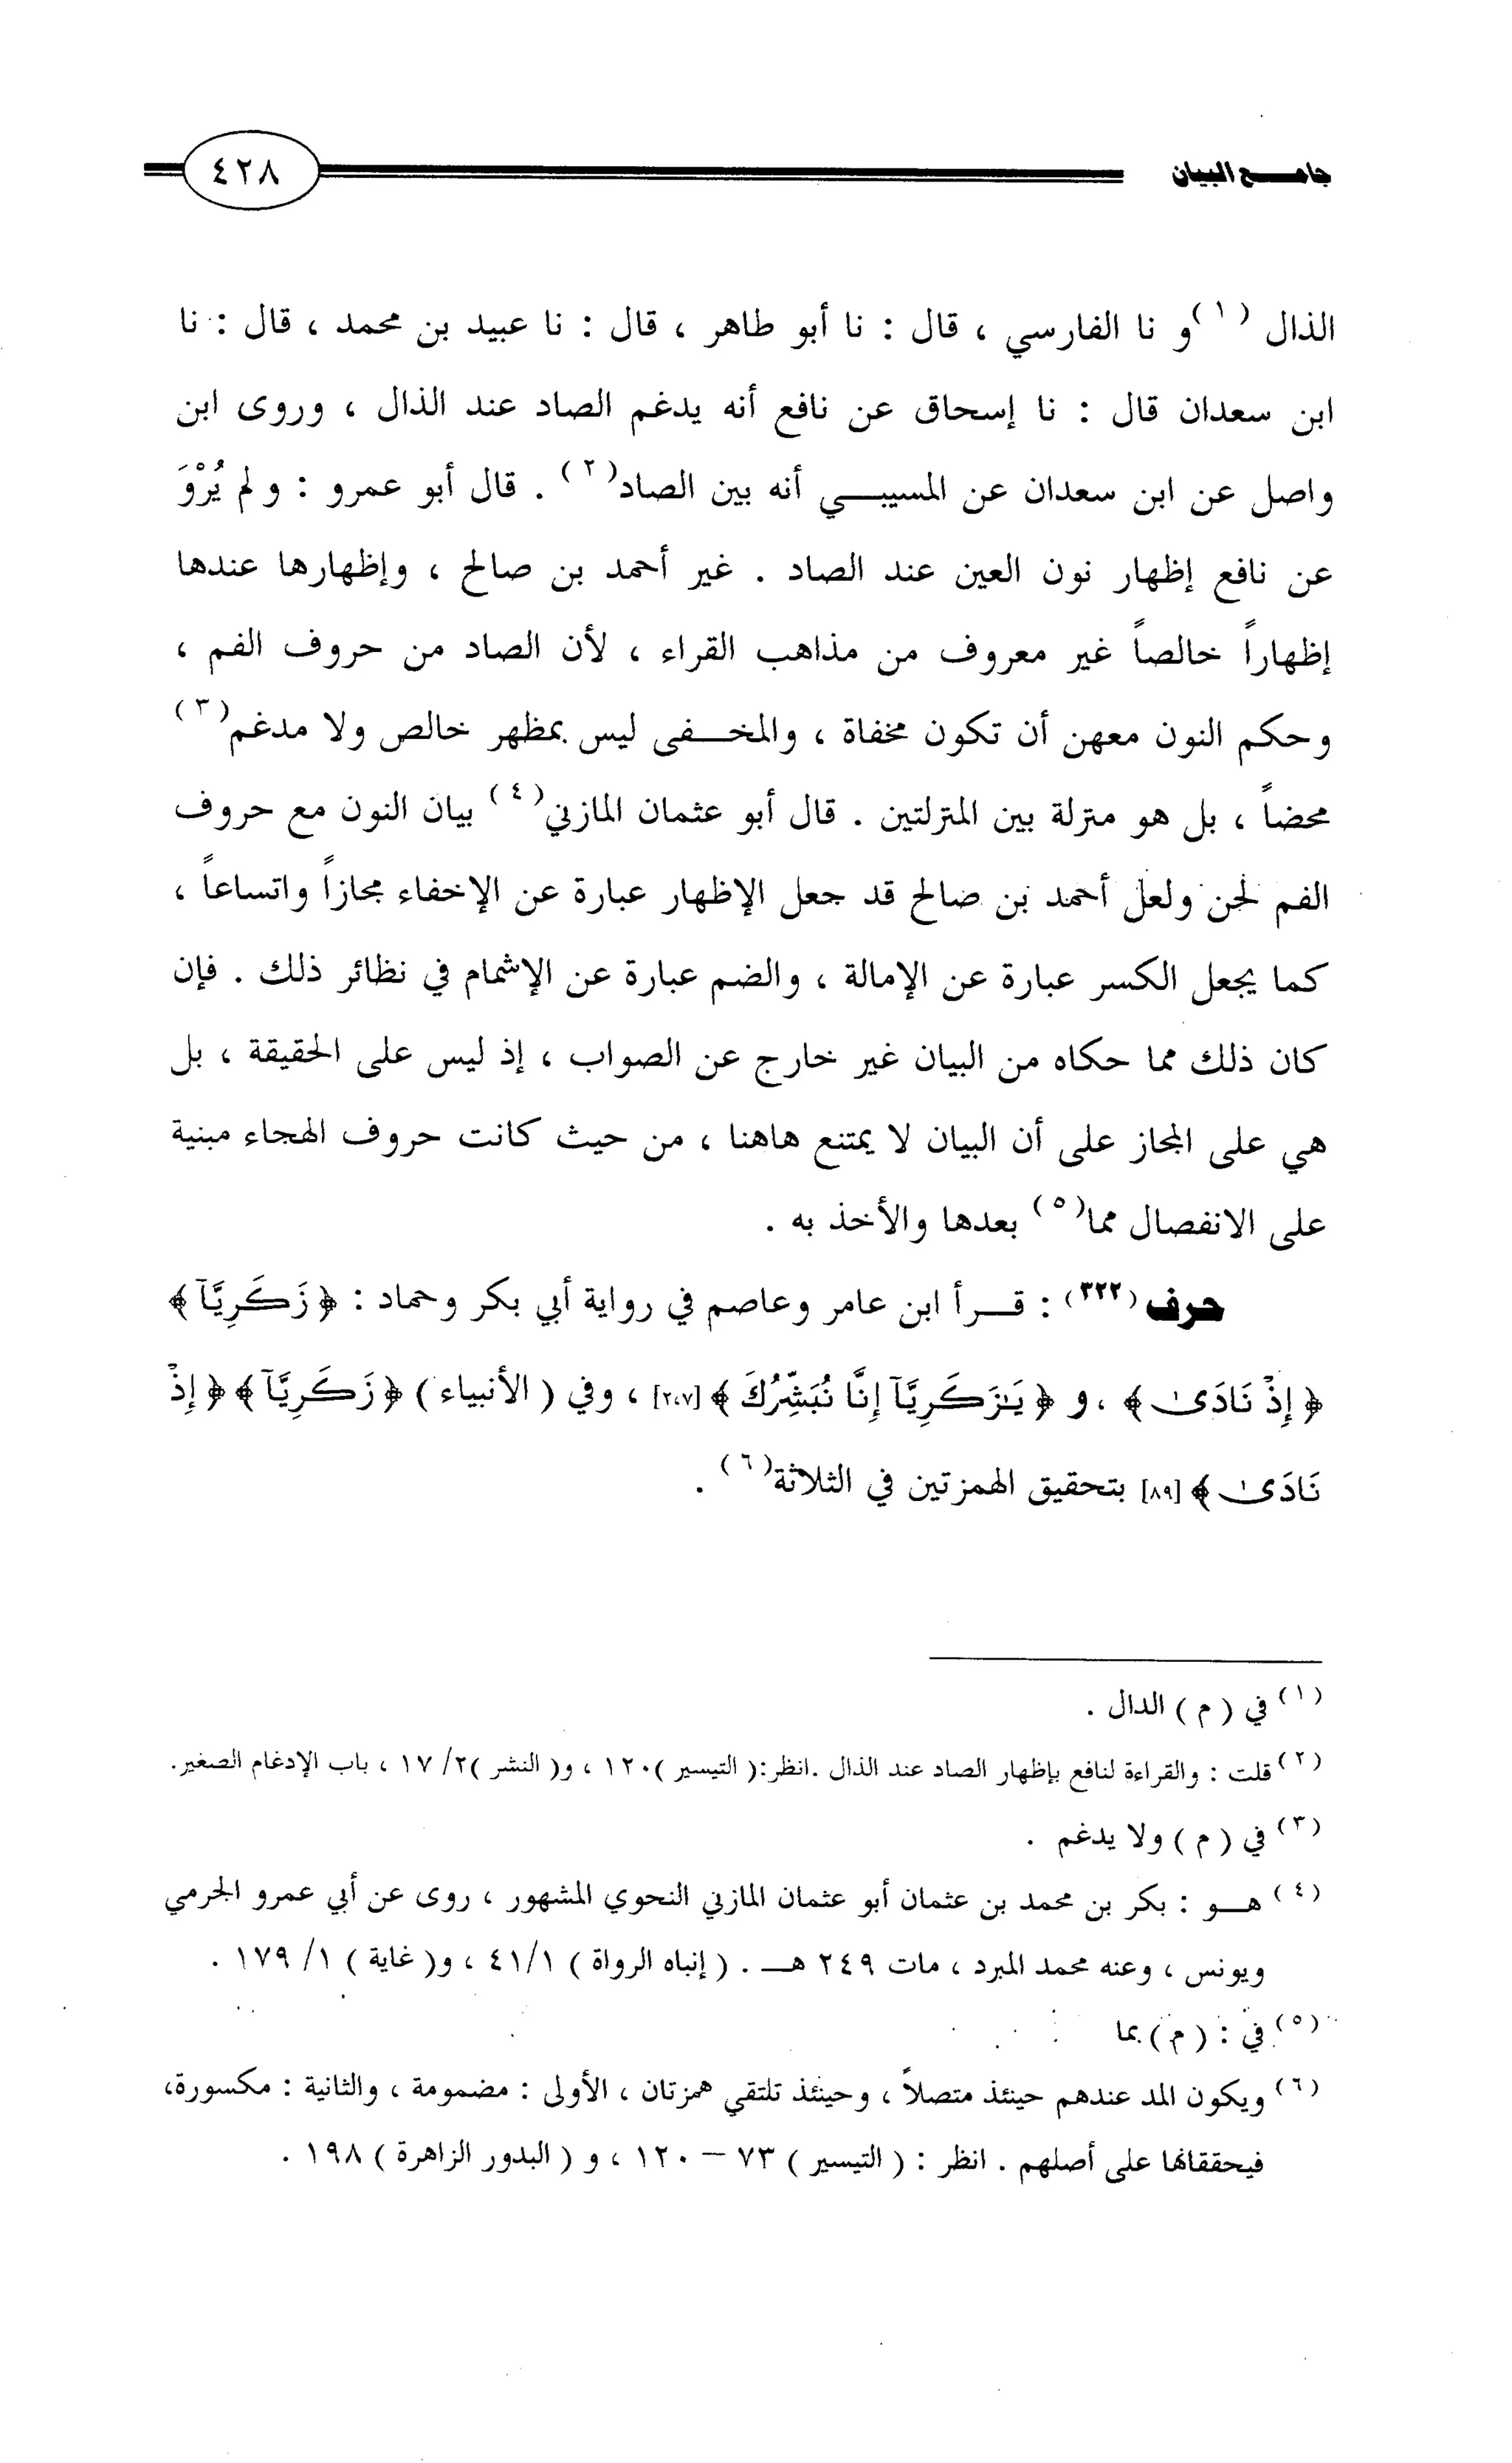 جامع البيان
٤٢٨
الذال (١) و نا الفارسي ، قال : نا أبو طاهر ، قال : نا عبيد بن محمد ، قال : نا
ابن سعدان قال : نا إسحاق عن نافع أنه يدغم الصاد عند الذال ، وروى ابن
واصل عن ابن سعدان عن المسيبي أنه بين الصاد(٢) . قال أبو عمرو : ولم يُرْوَ
عن نافع إظهار نون العين عند الصاد . غير أحمد بن صالح ، وإظهارها عندها
إظهاراً خالصاً غير معروف من مذاهب القراء ، لأن الصاد من حروف الفم ،
وحكم النون معهن أن تكون مخفاة ، والمخفى ليس بمظهر خالص ولا مدغم(٣)
محضاً ، بل هو منزلة بين المنزلتين . قال أبو عثمان المازني(٤) بيان النون مع حروف
الفم لحن ولعل أحمد بن صالح قد جعل الإظهار عبارة عن الإخفاء مجازاً واتساعاً ،
كما يجعل الكسر عبارة عن الإمالة ، والضم عبارة عن الإشمام في نظائر ذلك . فإن
كان ذلك مما حكاه من البيان غير خارج عن الصواب ، إذ ليس على الحقيقة ، بل
هي على المجاز على أن البيان لا يمتنع هاهنا ، من حيث كانت حروف الهجاء مبنية
على الانفصال مما(٥) بعدها والأخذ به .
حرف (٣٢٢) : قرأ ابن عامر وعاصم في رواية أبي بكر وحماد : ﴿ زَكَرِيَّآ ﴾
﴿ إِذْ نَادَىٰ ﴾ ، و ﴿ يَـٰزَكَرِيَّآ إِنَّا نُبَشِّرُكَ ﴾ [٢،٧] ، وفي ( الأنبياء ) ﴿ زَكَرِيَّآ ﴾ ﴿ إِذْ
نَادَىٰ ﴾ [٨٩] بتحقيق الهمزتين في الثلاثة(٦) .
(١) في ( م ) الدال .
(٢) قلت : والقراءة لنافع بإظهار الصاد عند الذال .انظر:( التيسير )١٢٠ ، و( النشر )٢/ ١٧ ، باب الإدغام الصغير.
(٣) في ( م ) ولا يدغم .
(٤) هو : بكر بن محمد بن عثمان أبو عثمان المازني النحوي المشهور ، روى عن أبي عمرو الجرمي
ويونس ، وعنه محمد المبرد ، مات ٢٤٩ هـ . ( إنباه الرواة ) ٤١/١ ، و( غاية ) ١/ ١٧٩ .
(٥) في : ( م ) بما
(٦) ويكون المد عندهم حينئذ متصلاً ، وحينئذ تلتقي همزتان ، الأولى : مضمومة ، والثانية : مكسورة،
فيحققانها على أصلهم . انظر : ( التيسير ) ٧٣ – ١٢٠ ، و ( البدور الزاهرة ) ١٩٨ .